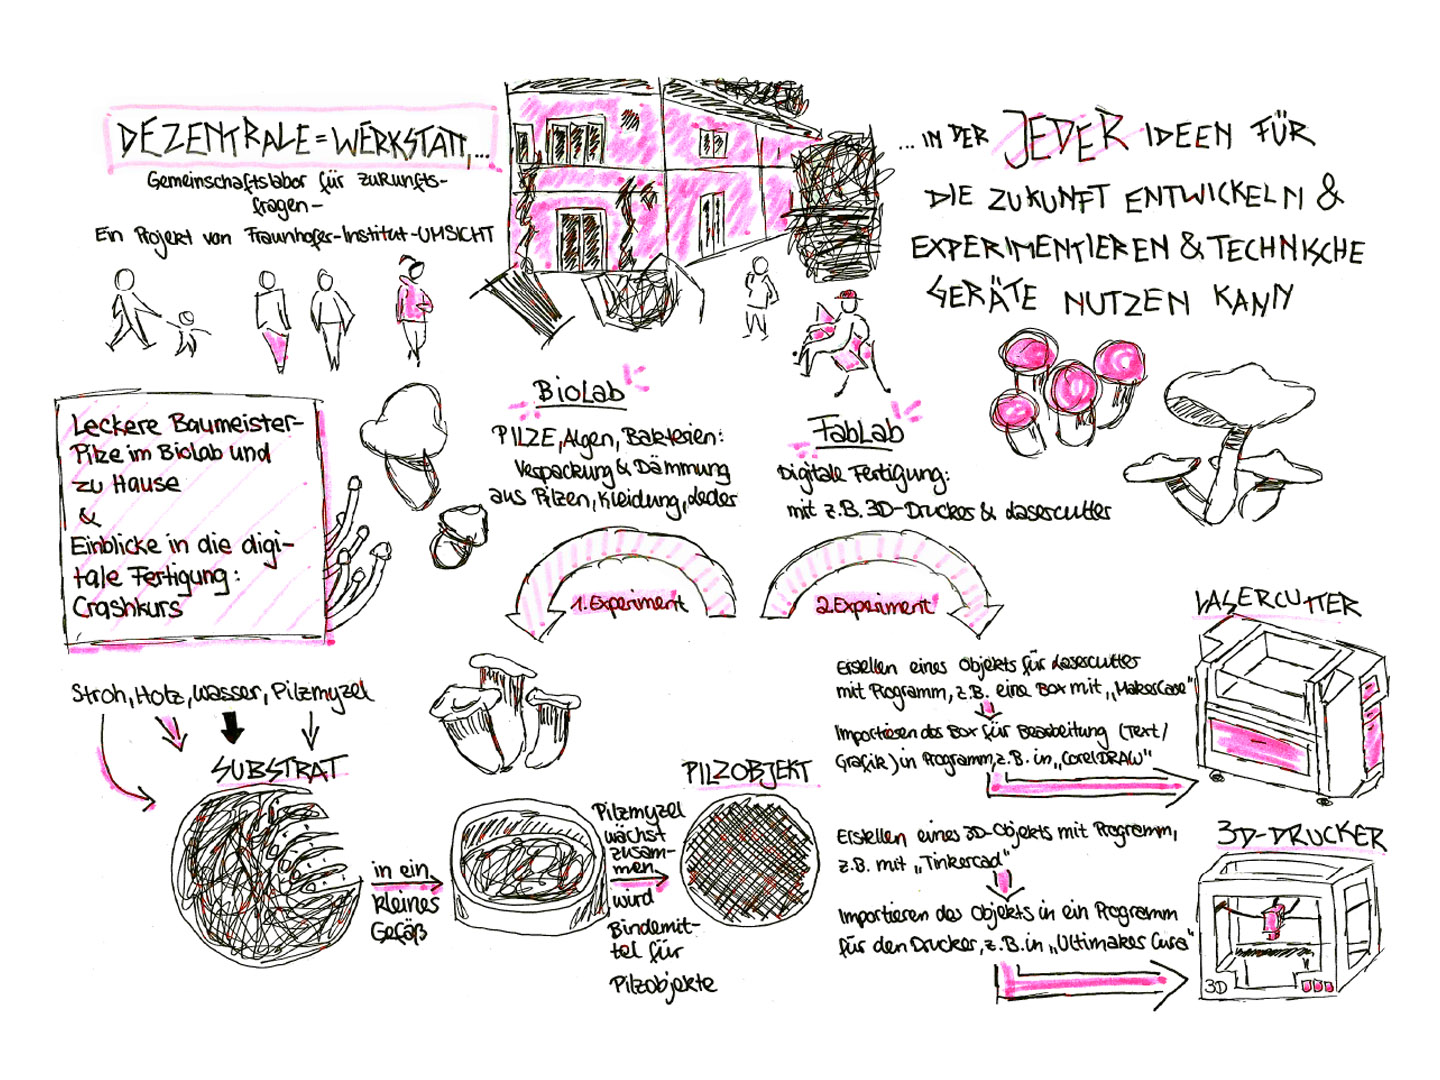 DEZENTRALE = WERKSTATT,...
Gemeinschaftslabor für Zukunfts-
fragen-
Ein Projekt von Fraunhofer-Institut-UMSICHT
... IN DER JEDER IDEEN FÜR
DIE ZUKUNFT ENTWICKELN &
EXPERIMENTIEREN & TECHNISCHE
GERÄTE NUTZEN KANN
Leckere Baumeister-
Pilze im BioLab und
zu Hause
&
Einblicke in die digi-
tale Fertigung:
Crashkurs
BioLab
PILZE, Algen, Bakterien:
Verpackung & Dämmung
aus Pilzen, Kleidung, Leder
FabLab
Digitale Fertigung:
mit z.B. 3D-Drucker & Lasercutter
1. Experiment
2. Experiment
Stroh, Holz, Wasser, Pilzmyzel
SUBSTRAT
in ein
kleines
Gefäß
Pilzmyzel
wächst
zusam-
men
wird
Bindemit-
tel für
Pilzobjekte
PILZOBJEKT
Erstellen eines Objekts für Lasercutter
mit Programm, z.B. eine Box mit „MakerCase"
Importieren der Box für Bearbeitung (Text/
Grafik) in Programm, z.B. in „CorelDRAW"
LASERCUTTER
Erstellen eines 3D-Objekts mit Programm,
z.B. mit „Tinkercad"
Importieren des Objekts in ein Programm
für den Drucker, z.B. in „Ultimaker Cura"
3D-DRUCKER
3D